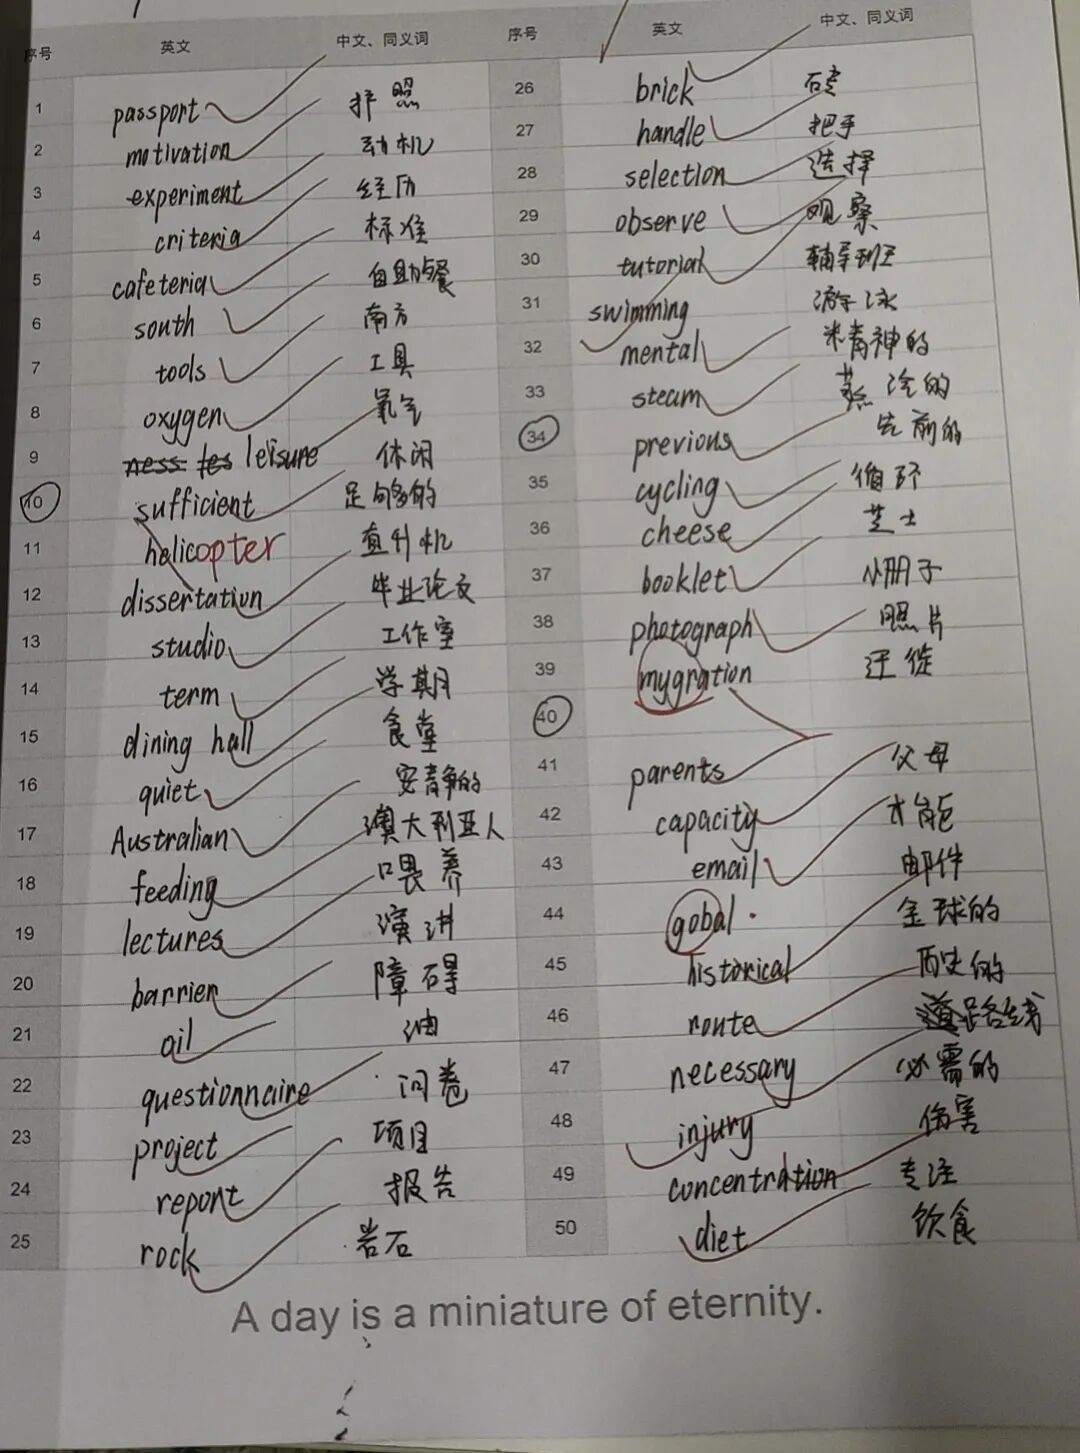 序号 英文 中文、同义词 序号 英文 中文、同义词
1 passport 护照 26 brick 砖
2 motivation 动机 27 handle 把手
3 experiment 经历 28 selection 选择
4 criteria 标准 29 observe 观察
5 cafeteria 自助餐 30 tutorial 辅导班
6 south 南方 31 swimming 游泳
7 tools 工具 32 mental 精神的
8 oxygen 氧气 33 steam 蒸
9 ness les leisure 休闲 34 previous 先前的
10 sufficient 足够的 35 cycling 循环
11 helicopter 直升机 36 cheese 芝士
12 dissertation 毕业论文 37 booklet 小册子
13 studio 工作室 38 photograph 照片
14 term 学期 39 mygration 迁徙
15 dining hall 食堂 40
16 quiet 安静的 41 parents 父母
17 Australian 澳大利亚人 42 capacity 才能
18 feeding 喂养 43 email 邮件
19 lectures 演讲 44 gobal 全球的
20 barrier 障碍 45 historical 历史的
21 oil 油 46 route 路线
22 questionnaire 问卷 47 necessary 必需的
23 project 项目 48 injury 伤害
24 report 报告 49 concentration 专注
25 rock 岩石 50 diet 饮食
A day is a miniature of eternity.